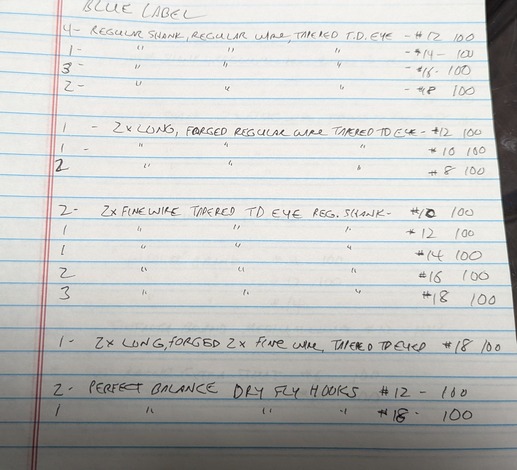 BLUE LABEL
4- REGULAR SHANK, REGULAR WIRE, TAPERED T.D. EYE - #12 100
1- " " " - #14 - 100
3- " " " - #16 - 100
2- " " " - #8 100
1 - 2X LONG, FORGED REGULAR WIRE TAPERED TD EYE - #12 100
1 - " " " #10 100
2 " " " #8 100
2- 2X FINE WIRE TAPERED TD EYE REG. SHANK - #10 100
1 " " " #12 100
1 " " " #14 100
2 " " " #16 100
3 " " " #18 100
1- 2X LONG, FORGED 2X FINE WIRE TAPERED TD EYED #18 100
2- PERFECT BALANCE DRY FLY HOOKS #12 - 100
1 " " " #18 - 100